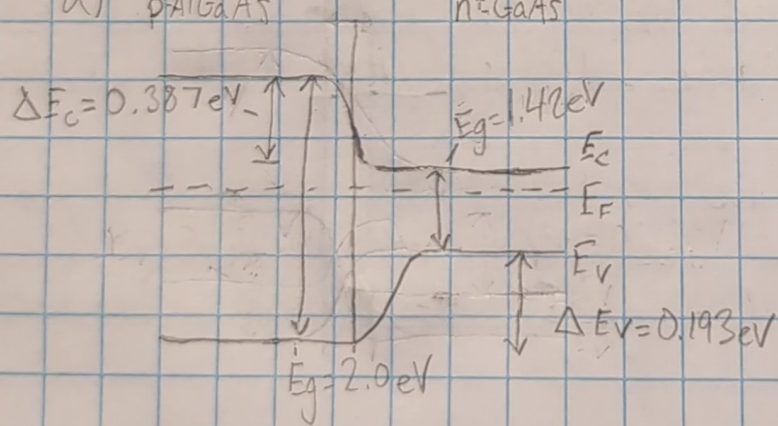 a) p-AlGaAs n⁺-GaAs
ΔEc=0.387eV
Eg=1.42eV
Ec
EF
Ev
ΔEv=0.193eV
Eg=2.0eV